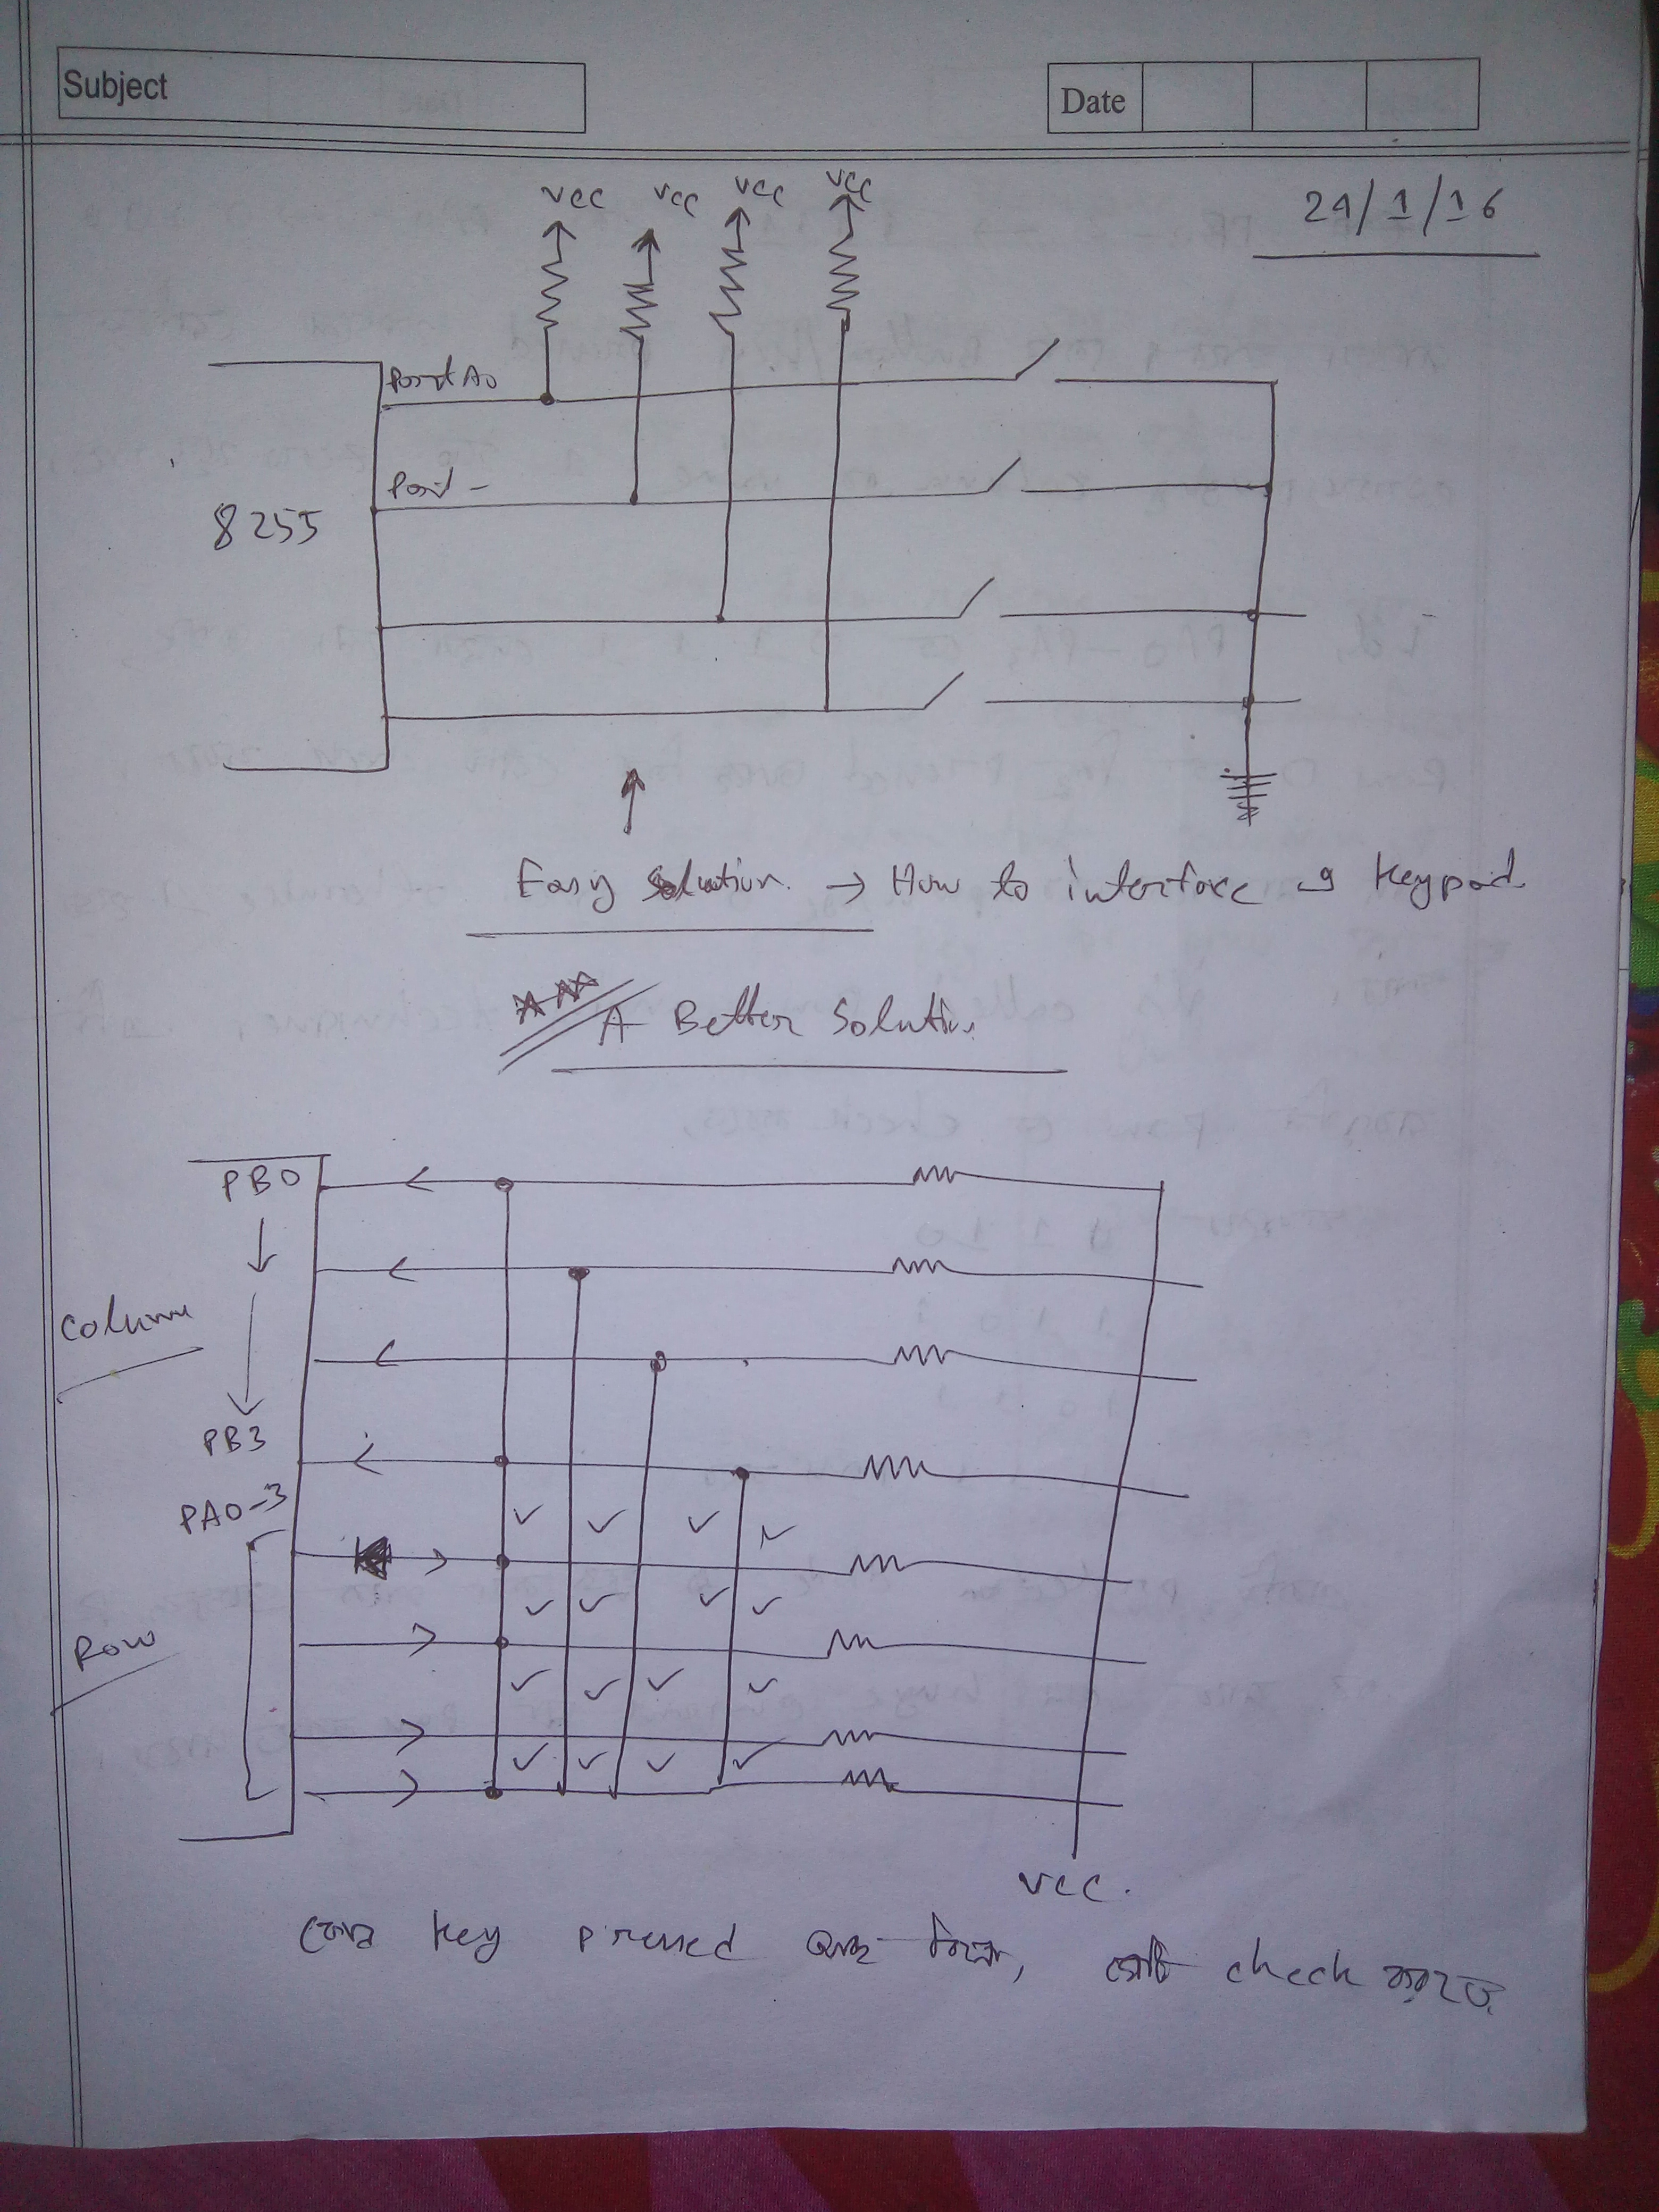 Subject
Date
24/1/16
vcc vcc vcc vcc
Port A0
Port -
8255
Easy Solution. → How to interface a keypad.
A Better Solution
PB0
Column
PB3
PA0-3
Row
vcc.
কোন key pressed আছে কিনা, সেটি check করতে